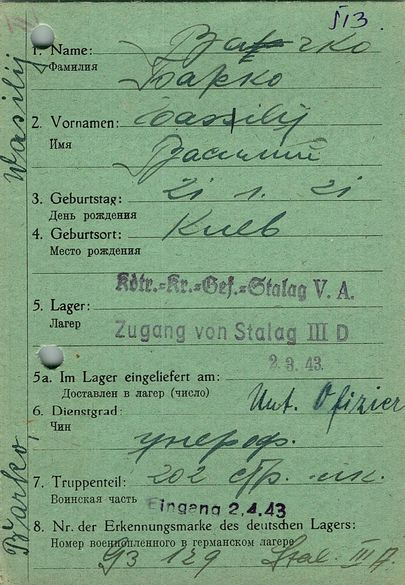 1. Name:
Фамилия
Барко
2. Vornamen: Wassilij
Имя
Василий
3. Geburtstag: 21 1. 21
День рождения
4. Geburtsort: Киев
Место рождения
Kdtr.=Kr.=Gef.=Stalag V. A.
5. Lager:
Лагер
Zugang von Stalag III D
2. 3. 43.
5a. Im Lager eingeliefert am:
Доставлен в лагер (число)
Unt. Ofizier
6. Dienstgrad:
Чин
унтероф.
7. Truppenteil: 202 стр. п.
Воинская часть
Eingang 2.4.43
8. Nr. der Erkennungsmarke des deutschen Lagers:
Номер военнопленного в германском лагере
93 129 Stal. III A.
Barko, Wasilij